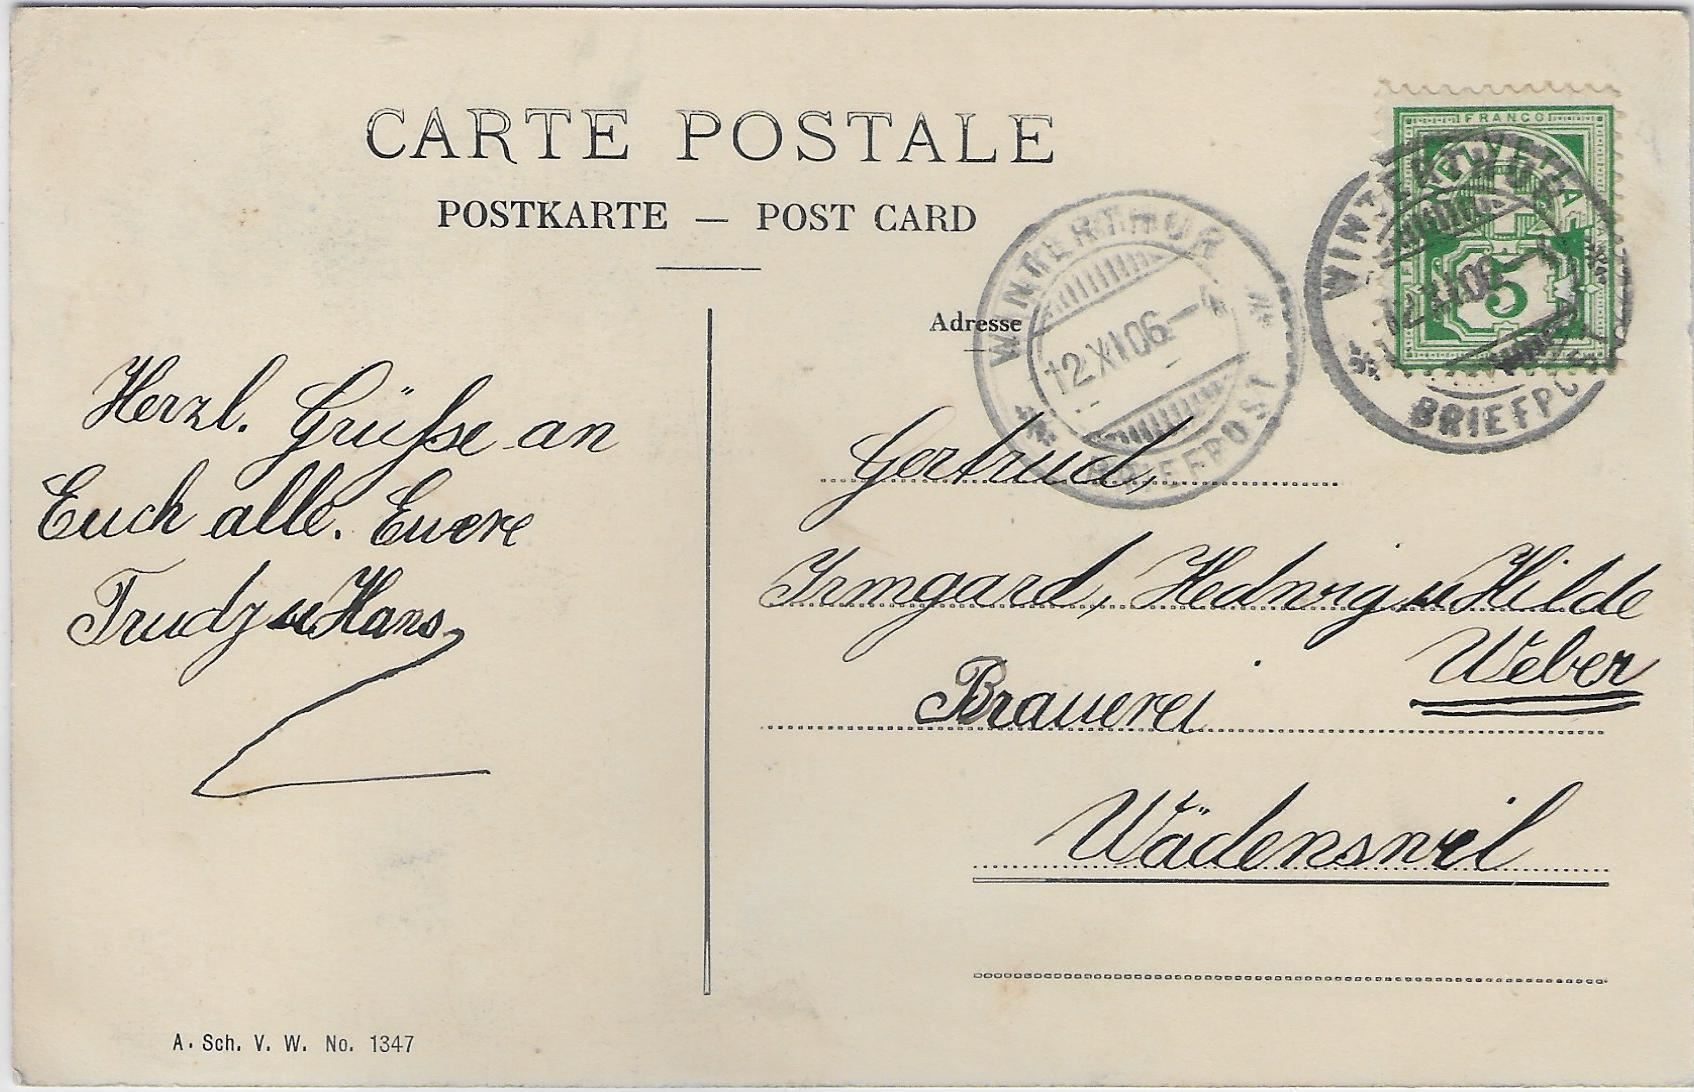 CARTE POSTALE
POSTKARTE — POST CARD
Adresse
WINTERTHUR
12.XI.06–4
BRIEFPOST
FRANCO
HELVETIA
5
WINTERTHUR
12.XI.06–4
BRIEFPOST
Herzl. Grüsse an
Euch alle. Euere
Trudy u Hans
Gertrud,
Irmgard, Hedwig u Hilde
Weber
Brauerei
Wädensweil
A. Sch. V. W. No. 1347